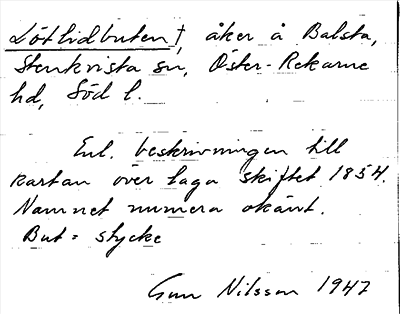 Lötlidbuten †, åker å Balsta,
Stenkvista sn, Öster-Rekarne
hd, Söd l.
Enl. beskrivningen till
kartan över laga skiftet 1854.
Namnet numera okänt.
But = stycke
Gun Nilsson 1947